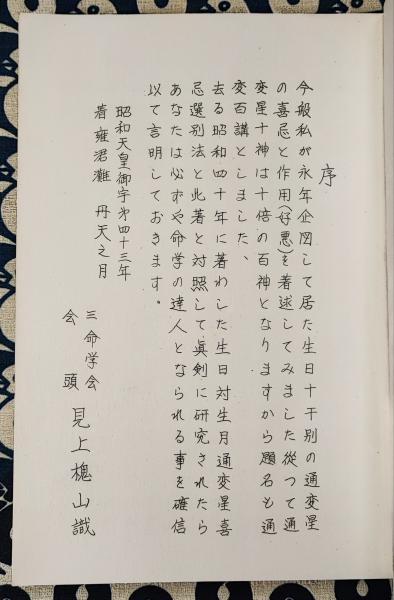 序
今般私が永年企図して居た生日十干別の通変星
の喜忌と作用(好悪)を著述してみました従つて通
変星十神は十倍の百神となりますから題名も通
変百講としました、
去る昭和四十年に著わした生日対生月通変星喜
忌選別法と此著と対照して眞剣に研究されたら
あなたは必ずや命学の達人となられる事を確信
以て言明しておきます。
昭和天皇御宇第四十三年
着雍君灘 丹天之月
三命学会
会頭 見上槐山識